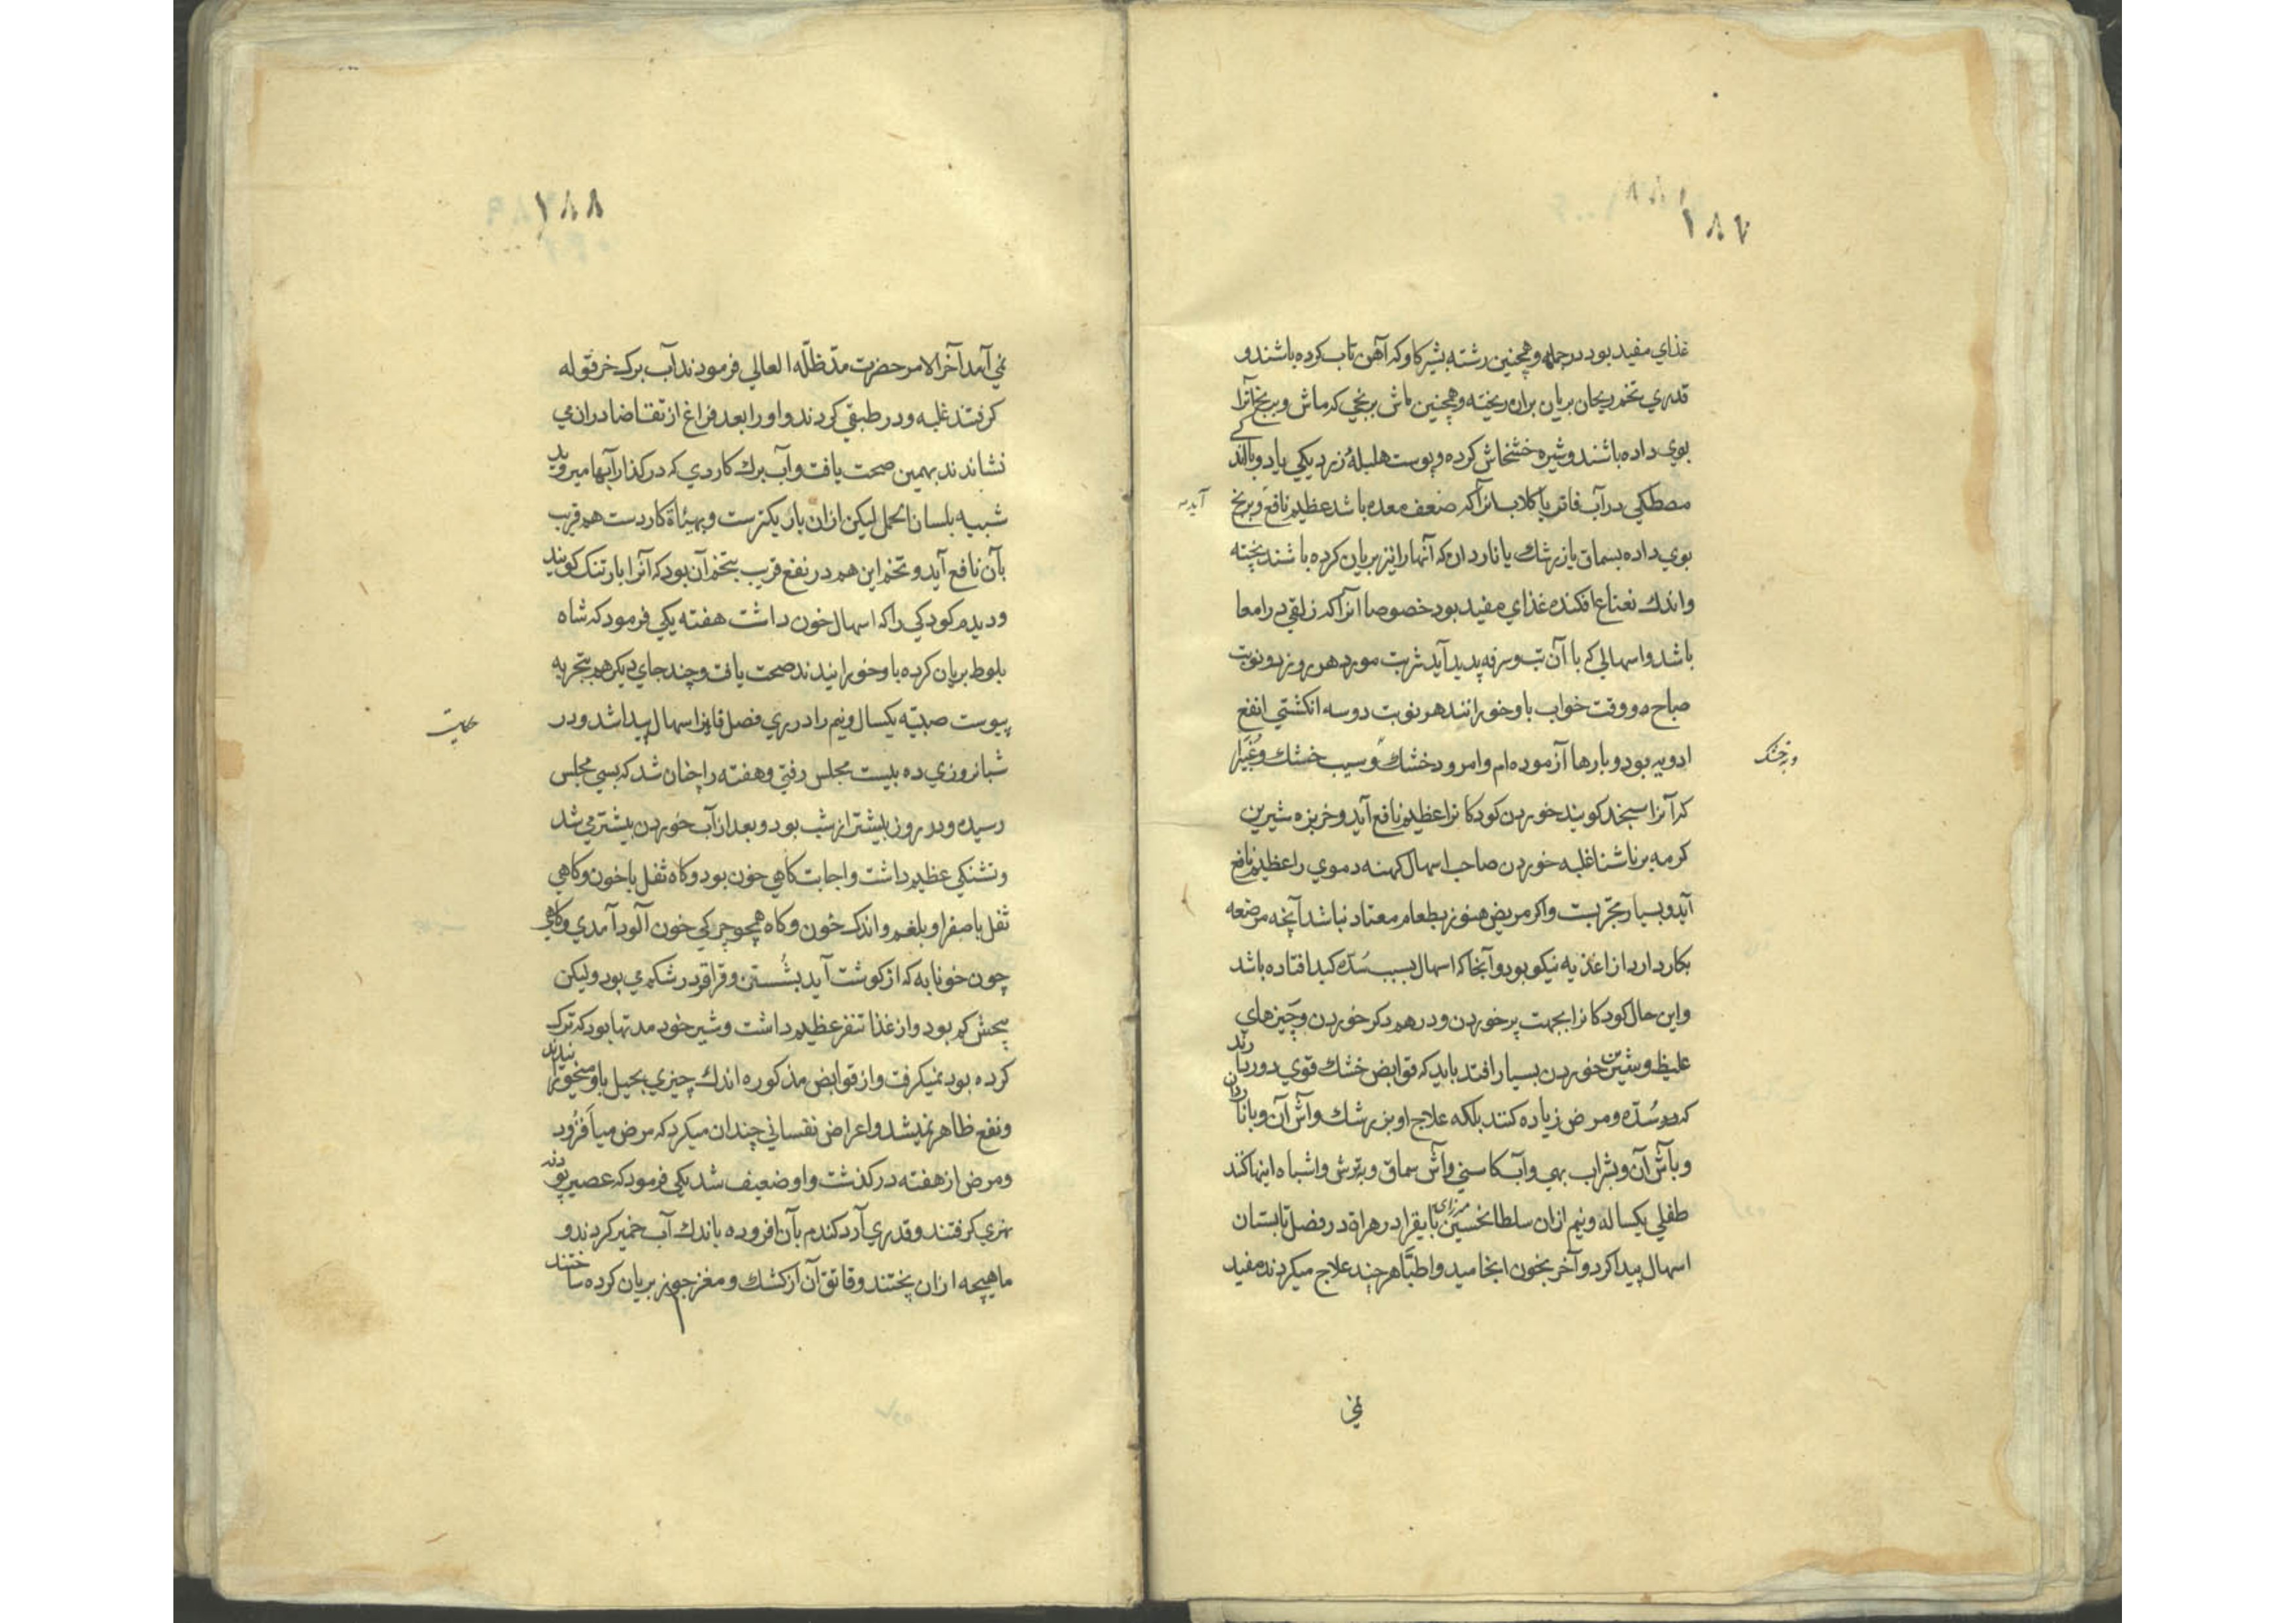 ١٨٧
غذاي مفيد بود در جمله وهمچنين رشته بشير كاو كه آهن تاب كرده باشند و
قدري تخم ريحان بريان بران ريخته وهمچنين ماش برنجي كه ماش و برنج آنرا
بوي داده باشند و شيره خشخاش كرده و پوست هليلهٔ زرد يكي يا دو با اندكے
مصطكي در آب فاتر يا كلاب انرا كه ضعف معده باشد عظيم نافع و برنج
آيد
بوي داده بسماق يا زرشك يا ناردان كه آنها را نيز بريان كرده باشند پخته
واندك نعناع افكنده غذاي مفيد بود خصوصا انرا كه زلقي در امعا
باشد و اسهالي كه با آن تب و سرفه پديد آيد شربت مورد هر روز دو نوبت
صباح و وقت خواب باو خورانند هر نوبت دو سه انكشتي انفع
ادويه بود و بارها آزموده ام و امرود خشك و سيب خشك و غبيرا
كه آنرا سنجد كويند خوردن كودكانرا عظيم نافع آيد و خربزه شيرين
كرمه برناشتا غلبه خوردن صاحب اسهال كهنه دموي را عظيم نافع
آيد و بسيار مجربست و اكر مريض هنوز بطعام معتاد نباشد آنچه مرضعه
بكار دارد از اغذيه نيكو بود و آنجا كه اسهال بسبب سُدّه كبد افتاده باشد
واين حال كودكانرا بجهت پر خوردن و در هم دكر خوردن و چيزهاي
غليظ و شيرين خوردن بسيار افتد بايد كه قوابض خشك قوي دور دارند
كه سُدّه و مرض زياده كنند بلكه علاج او بزرشك و آش آن و باناردان
و بآش آن و بشراب بهي و آب كاسني و آش سماق و ترش و اشباه اينها كنند
طفلي يكساله و نيم ازان سلطانحسين ميرزاي بايقرا در هراة در فصل تابستان
اسهال پيدا كرد و آخر بخون انجاميد و اطبّا هر چند علاج ميكردند مفيد
نمي
١٨٨
نمي آمد آخر الامر حضرت مدّ ظلّه العالي فرمودند آب برك خرفه وله
كرفتند غلبه و در طبقي كردند و او را بعد فراغ از تقاضا دران مي
نشاندند بهمين صحت يافت و آب برك كاردي كه در كذار آبها ميرويد
شبيه بلسان الحمل ليكن ازان باريكترست و بهيأة كاردست هم قريب
بآن نافع آيد و تخم اين هم در نفع قريب بتخم آن بود كه آنرا بارتنك كويند
و ديدم كودكي را كه اسهال خون داشت هفته يكي فرمود كه شاه
بلوط بريان كرده باو خورانيدند صحت يافت و چند جاي ديكر هم بتجربه
پيوست صبيّه يكسال و نيم را در ري فصل اسهال پيدا شد و در
شبانروزي ده بيست مجلس رفتي و هفته را چنان شد كه بسي مجلس
رسيده و در روز بيشتر از شب بود و بعد از آب خوردن بيشتر مي شد
و تشنكي عظيم داشت و اجابت كاهي خون بود و كاه ثفل با خون و كاهي
ثفل با صفرا و بلغم و اندك خون و كاه همچو چركي خون آلود آمدي و كاهي
چون خونابه كه از كوشت آيد بشُستن و قراقر در شكم مي بود وليكن
پيچش كم بود و از غذا تنفر عظيم داشت و شير خود مدتها بود كه ترك
كرده بود نميكرفت و از قوابض مذكوره اندك چيزي بحيل باو ميخورانيدند
و نفع ظاهر نميشد و اعراض نفساني چندان ميكرد كه مرض ميافزود
و مرض از هفته در كذشت و او ضعيف شد يكي فرمود كه عصير پودنه
نهري كرفتند و قدري آرد كندم بآن افزوده باندك آب خمير كردند و
ماهيچه ازان پختند و قاتق آن از كشك و مغز جوز بريان كرده ساختند